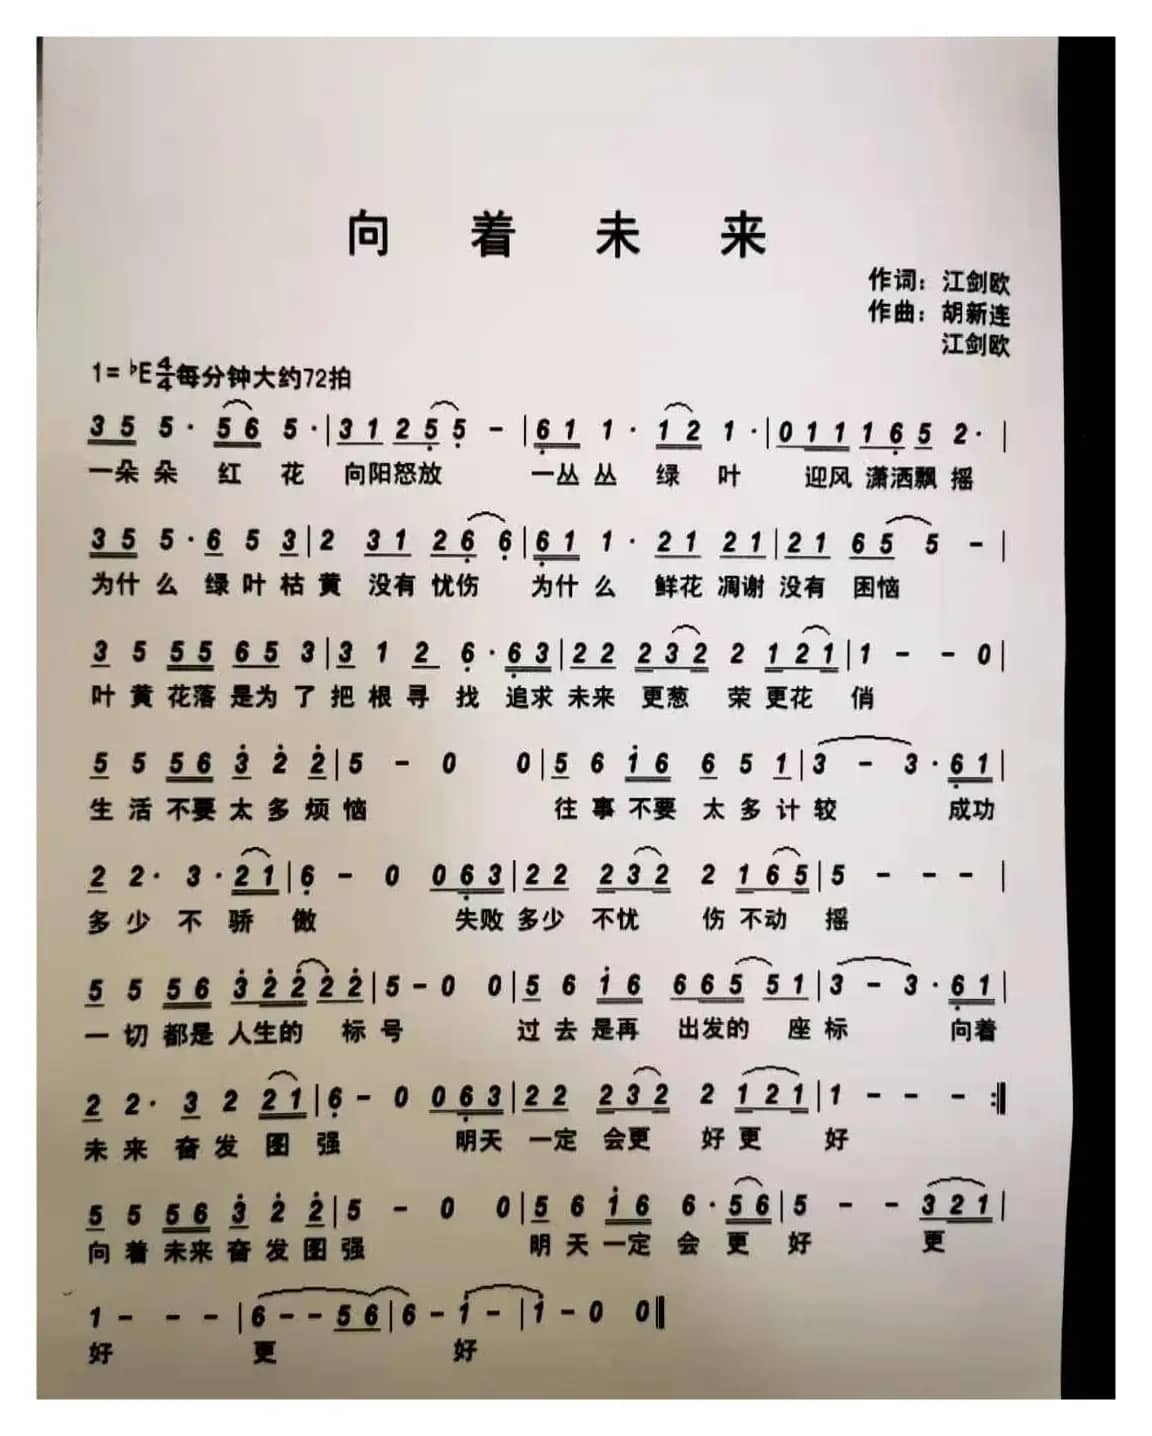 向着未来
作词：江剑欧
作曲：胡新连
江剑欧
1=♭E 4/4 每分钟大约72拍
3 5 5 · 5 6 5 · | 3 1 2 5 5 - | 6 1 1 · 1 2 1 · | 0 1 1 1 6 5 2 · |
一朵 朵 红 花 向阳怒放 一丛 丛 绿 叶 迎风 潇洒飘 摇
3 5 5 · 6 5 3 | 2 3 1 2 6 6 | 6 1 1 · 2 1 2 1 | 2 1 6 5 5 - |
为什 么 绿 叶 枯 黄 没有 忧伤 为什 么 鲜花 凋谢 没有 困恼
3 5 5 5 6 5 3 | 3 1 2 6 · 6 3 | 2 2 2 3 2 2 1 2 1 | 1 - - 0 |
叶 黄 花落 是为 了 把 根 寻 找 追求 未来 更葱 荣 更花 俏
5 5 5 6 3 2 2 | 5 - 0 0 | 5 6 1 6 6 5 1 | 3 - 3 · 6 1 |
生 活 不要 太 多 烦 恼 往 事 不要 太 多 计 较 成功
2 2 · 3 · 2 1 | 6 - 0 0 6 3 | 2 2 2 3 2 2 1 6 5 | 5 - - - |
多 少 不 骄 傲 失败 多少 不忧 伤 不动 摇
5 5 5 6 3 2 2 2 2 | 5 - 0 0 | 5 6 1 6 6 6 5 5 1 | 3 - 3 · 6 1 |
一 切 都是 人生的 标 号 过 去 是再 出发的 座 标 向着
2 2 · 3 2 2 1 | 6 - 0 0 6 3 | 2 2 2 3 2 2 1 2 1 | 1 - - - :‖
未 来 奋 发 图 强 明天 一定 会更 好 更 好
5 5 5 6 3 2 2 | 5 - 0 0 | 5 6 1 6 6 · 5 6 | 5 - - 3 2 1 |
向 着 未来 奋 发 图 强 明 天 一定 会 更 好 更
1 - - - | 6 - - 5 6 | 6 - 1 - | 1 - 0 0 ‖
好 更 好